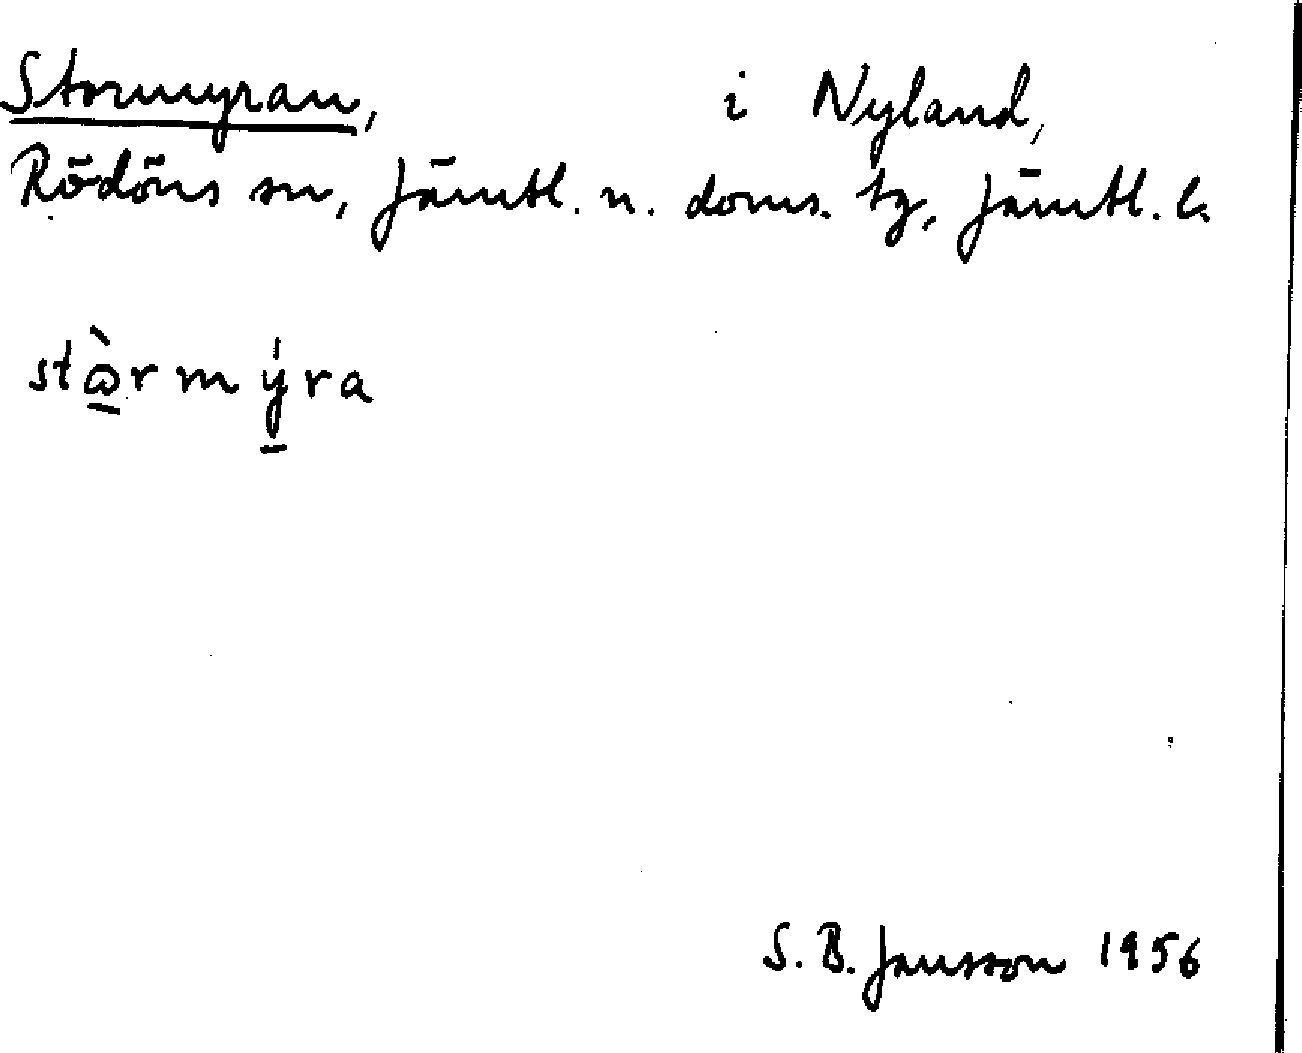 Stormyran, i Nyland,
Rödöns sn, Jämtl. n. doms. tg, Jämtl. l.
stɷ̠̀rmý̠ra
S. B. Jansson 1956